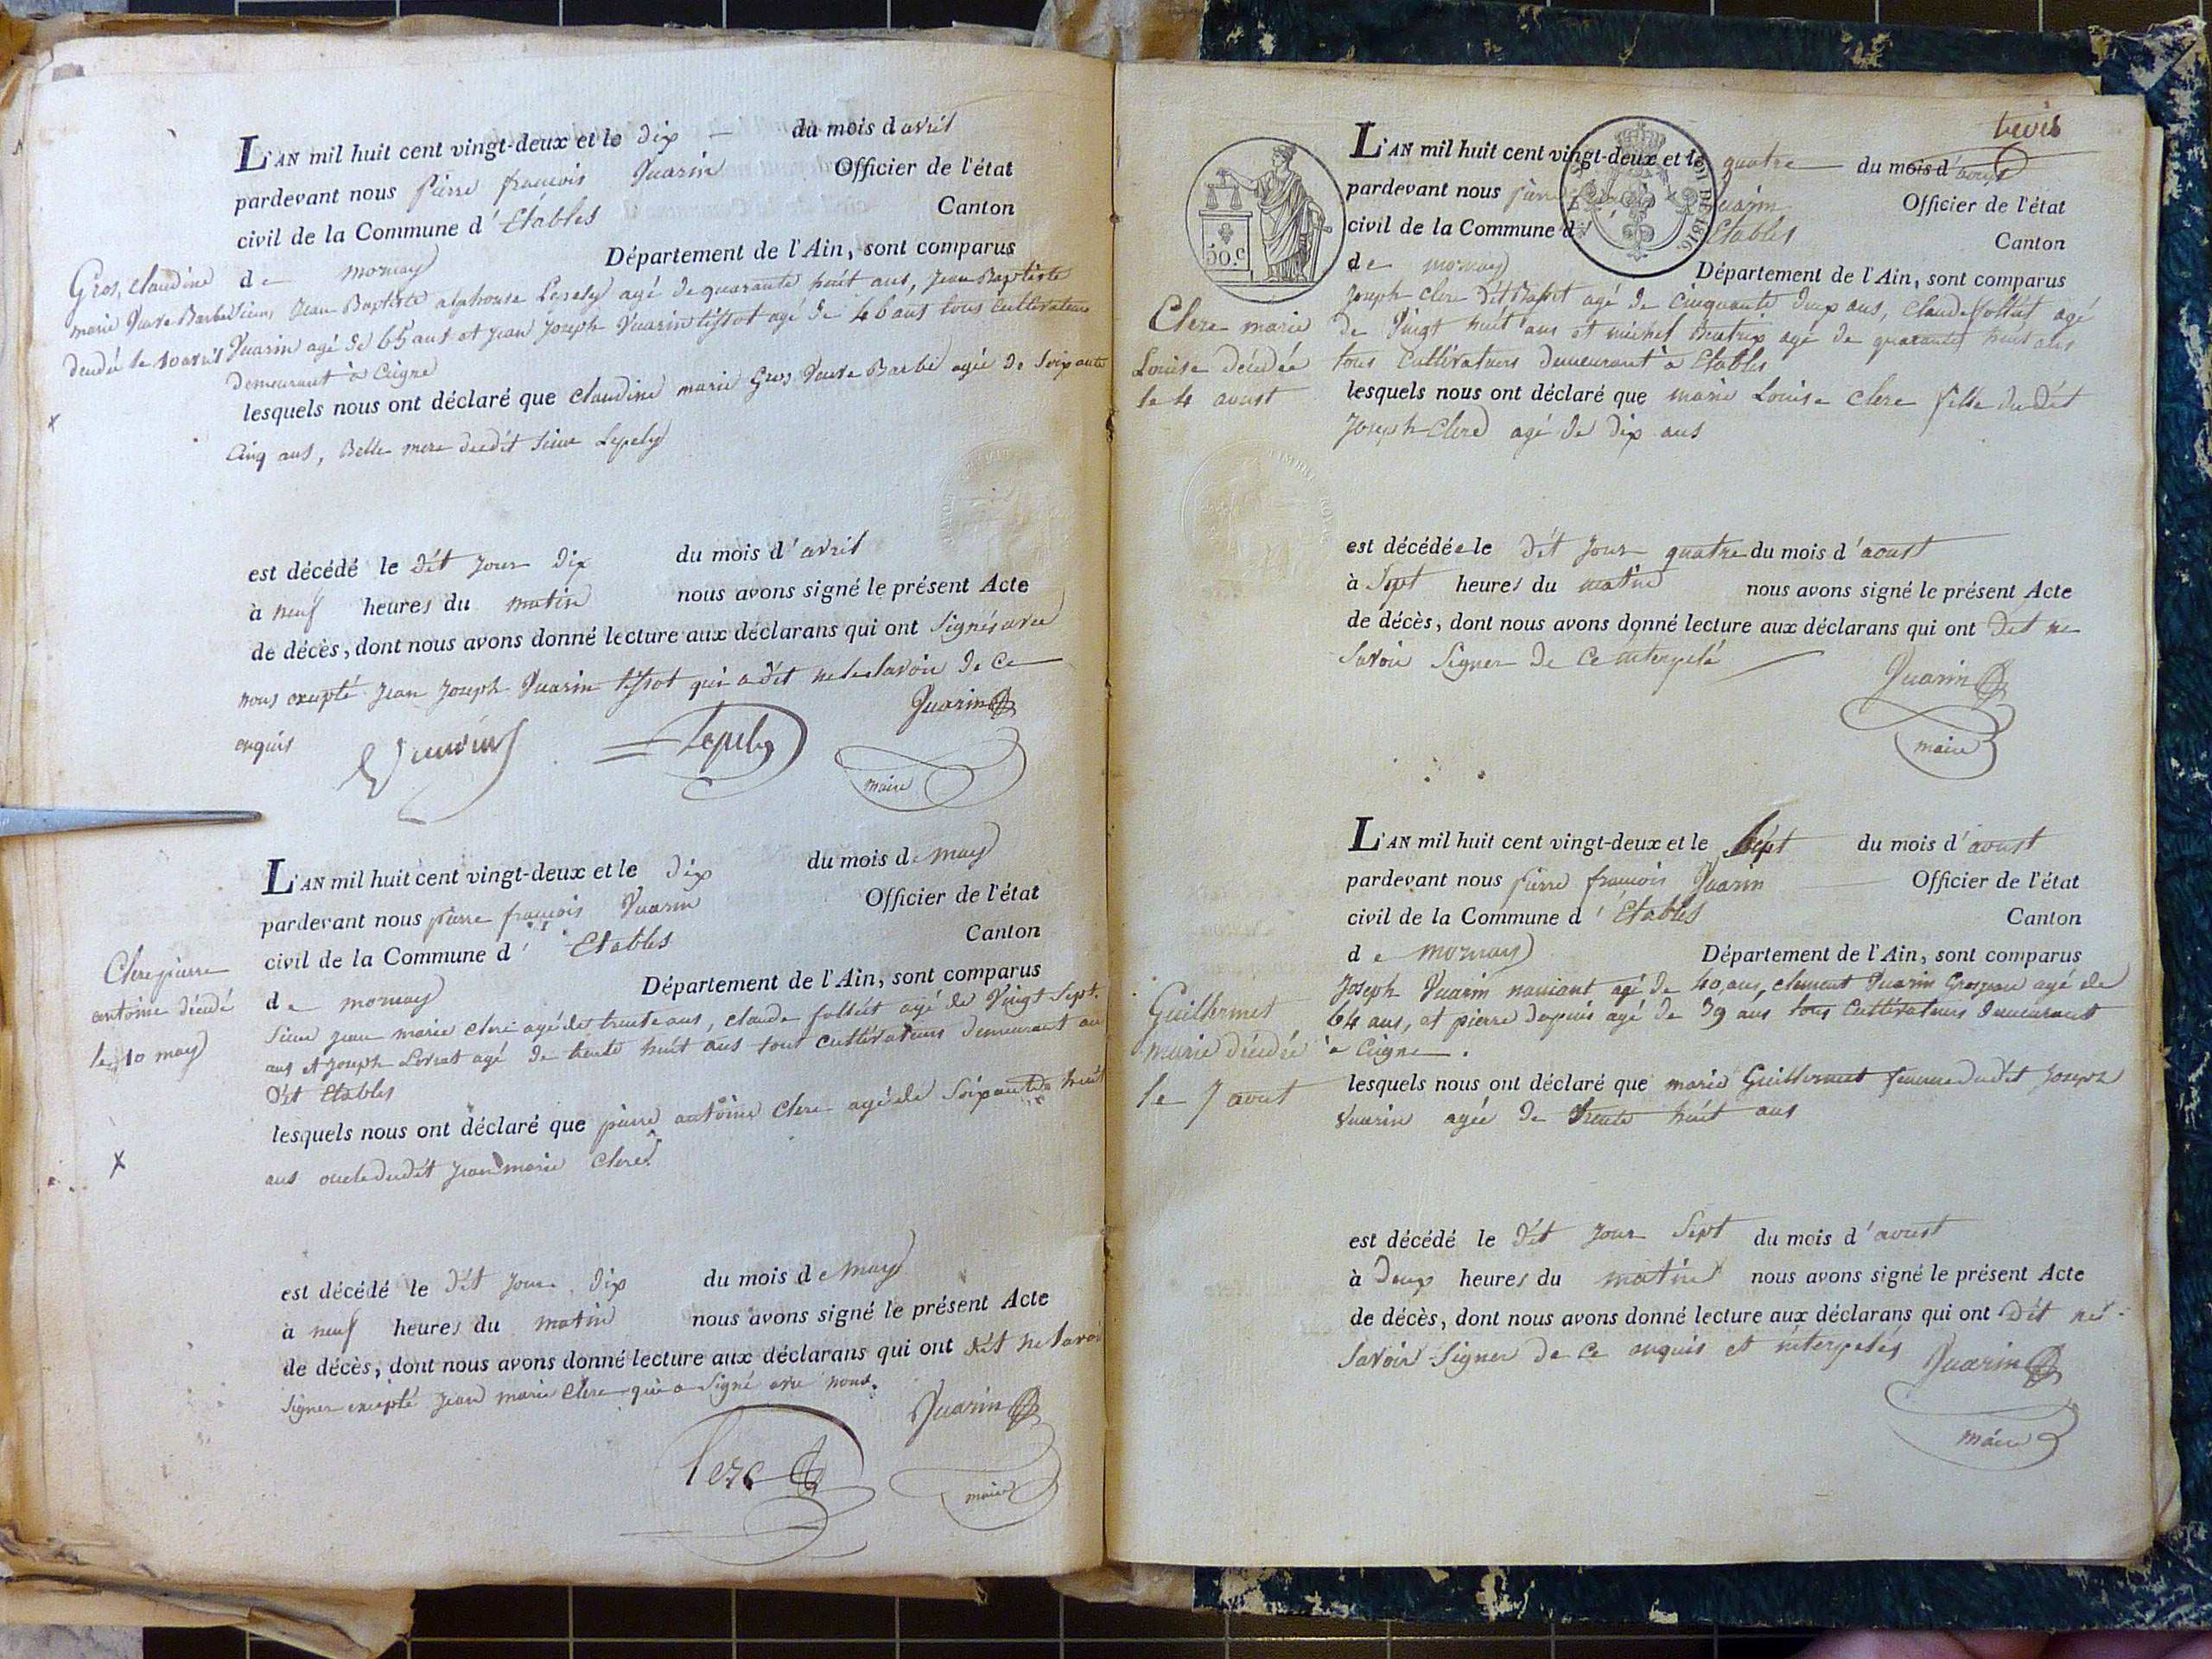 L'AN mil huit cent vingt-deux et le dix du mois d avril
pardevant nous pierre francois Vuarin Officier de l'état
civil de la Commune d' Etables Canton
de mornay Département de l'Ain, sont comparus
Gros, claudine
marie veuve Barbe
décédé le 10 avril
Sieur Jean Baptiste alphonse Lepely agé de quarante huit ans, Jean Baptiste
Vuarin agé de 65 ans et Jean Joseph Vuarin tissot agé de 46 ans tous cultivateurs
demeurant à Ceigne
lesquels nous ont déclaré que claudine marie Gros veuve Barbe agée de soixante
cinq ans, Belle mere dudit sieur Lepely
est décédé le dit jour dix du mois d'avril
à neuf heures du matin nous avons signé le présent Acte
de décès, dont nous avons donné lecture aux déclarans qui ont signés avec
nous excepté Jean Joseph Vuarin tissot qui a dit ne le savoir de ce
enquis
Vuarin
Lepely
Vuarin
maire
L'AN mil huit cent vingt-deux et le dix du mois de may
pardevant nous pierre françois Vuarin Officier de l'état
civil de la Commune d' Etables Canton
de mornay Département de l'Ain, sont comparus
Clere pierre
antoine décédé
le 10 may
Sieur jean marie clere agé de trente ans, claude follict agé de vingt sept
ans et Joseph Lorrat agé de trente huit ans tous cultivateurs demeurant au
dit Etables
lesquels nous ont déclaré que pierre antoine clere agé de soixante huit
ans oncle dudit jean marie Clere
X
est décédé le dit jour dix du mois de may
à neuf heures du matin nous avons signé le présent Acte
de décès, dont nous avons donné lecture aux déclarans qui ont dit ne savoir
signer excepté jean marie Clere qui a signé avec nous.
Clerc
Vuarin
maire
trois
L'AN mil huit cent vingt-deux et le quatre du mois d'aoust
pardevant nous Vuarin Officier de l'état
civil de la Commune d' Etables Canton
de mornay Département de l'Ain, sont comparus
50.c
ROI DE 1816.
Clere marie
Louise décédée
le 4 aoust
Joseph clere dit agé de cinquante deux ans, Claude follict agé
de vingt huit ans et michel agé de quarante huit ans
tous cultivateurs demeurant à Etables
lesquels nous ont déclaré que marie Louise Clere fille du dit
Joseph Clere agé de dix ans
est décédée le dit jour quatre du mois d'aoust
à sept heures du matin nous avons signé le présent Acte
de décès, dont nous avons donné lecture aux déclarans qui ont dit ne
savoir signer de ce interpelé
Vuarin
maire
L'AN mil huit cent vingt-deux et le Sept du mois d'aoust
pardevant nous pierre francois Vuarin Officier de l'état
civil de la Commune d' Etables Canton
de mornay Département de l'Ain, sont comparus
Guillermet
marie décédée
le 7 aout
Joseph Vuarin agé de 40 ans, clement Vuarin agé de
64 ans, et pierre dupuis agé de 39 ans tous cultivateurs demeurant
à Ceigne.
lesquels nous ont déclaré que marie Guillermet femme dudit Joseph
Vuarin agée de trente huit ans
est décédé le dit jour sept du mois d'aoust
à deux heures du matin nous avons signé le présent Acte
de décès, dont nous avons donné lecture aux déclarans qui ont dit ne
savoir signer de ce enquis et interpelés
Vuarin
maire